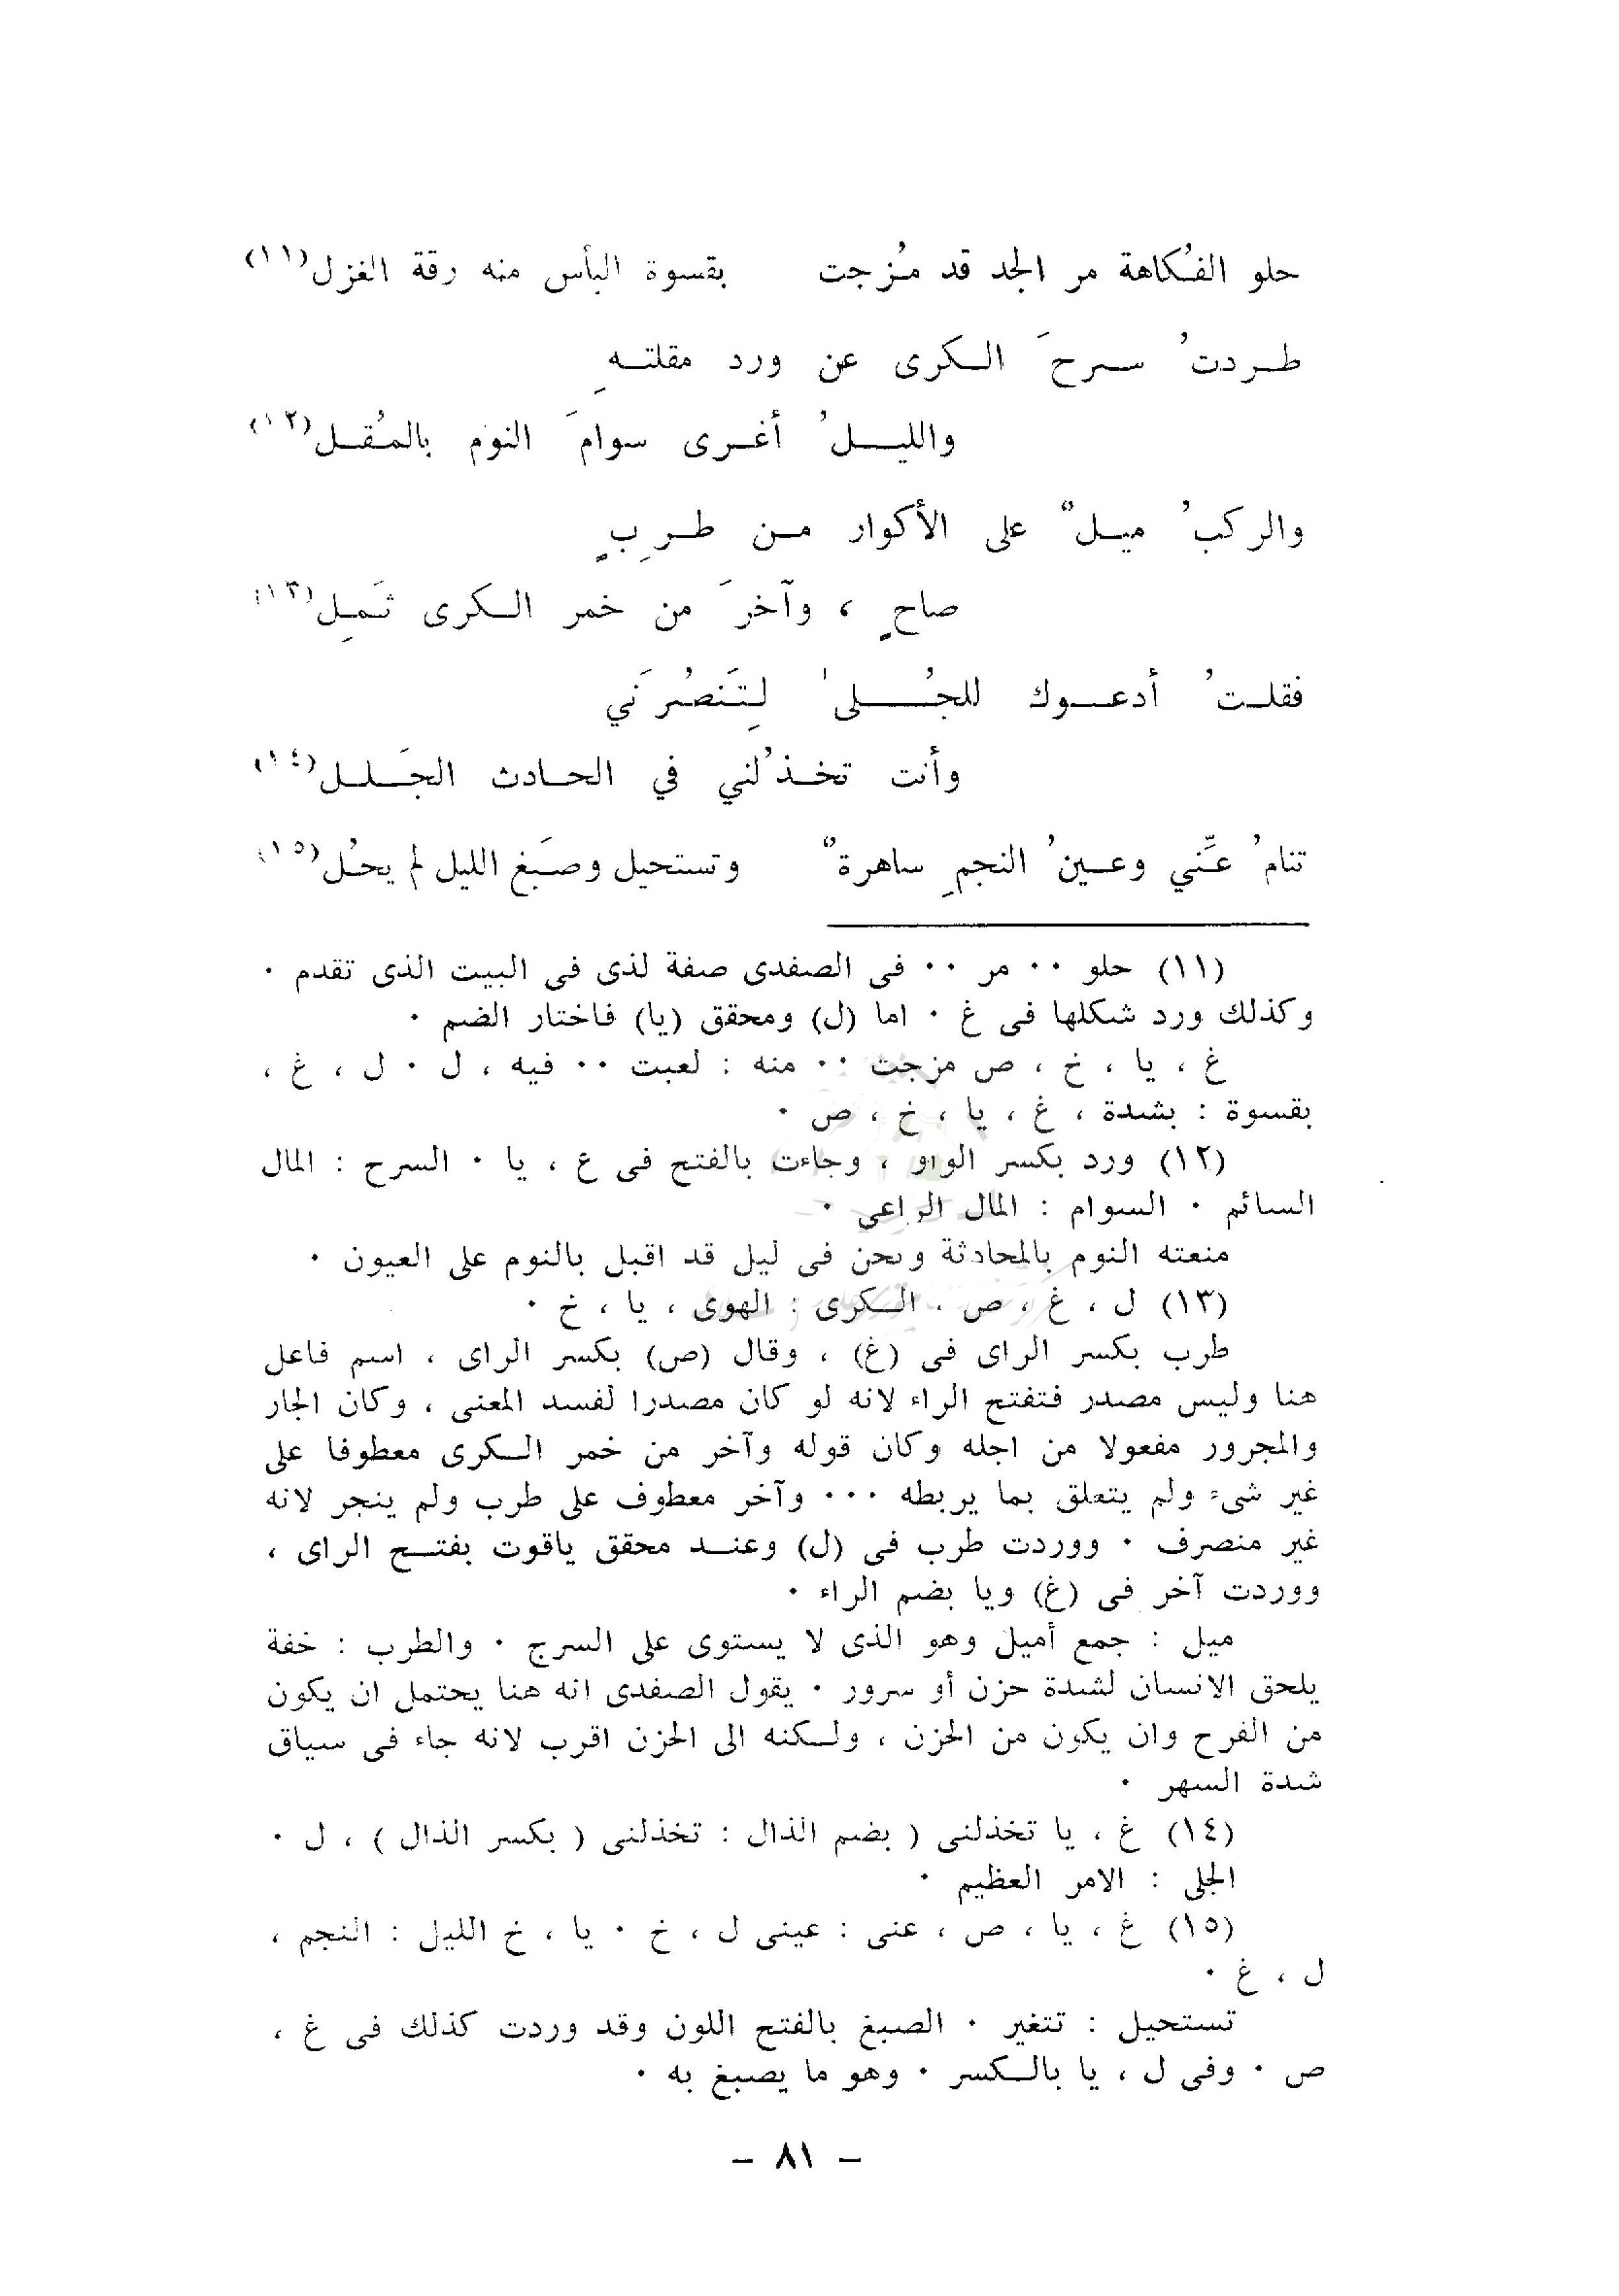 حلو الفُكاهة مر الجد قد مُزجت بقسوة البأس منه رقة الغزل(١١)
طردتُ سرحَ الكرى عن ورد مقلتهِ
والليلُ أغرى سوامَ النوم بالمُقل(١٢)
والركبُ ميلٌ على الأكوار من طرِبٍ
صاحٍ ، وآخرَ من خمر الكرى ثَمِل(١٣)
فقلتُ أدعوك للجُلى لِتَنصُرَني
وأنت تخذُلني في الحادث الجَلل(١٤)
تنامُ عنِّي وعينُ النجمِ ساهرةٌ وتستحيل وصَبغ الليل لم يحُل(١٥)
(١١) حلو ٠٠ مر ٠٠ فى الصفدى صفة لذى فى البيت الذى تقدم ٠
وكذلك ورد شكلها فى غ ٠ اما (ل) ومحقق (يا) فاختار الضم ٠
غ ، يا ، خ ، ص مزجت ٠٠ منه : لعبت ٠٠ فيه ، ل ٠ ل ، غ ،
بقسوة : بشدة ، غ ، يا ، خ ، ص ٠
(١٢) ورد بكسر الواو ، وجاءت بالفتح فى ع ، يا ٠ السرح : المال
السائم ٠ السوام : المال الراعى ٠
منعته النوم بالمحادثة ونحن فى ليل قد اقبل بالنوم على العيون ٠
(١٣) ل ، غ ، ص ، الكرى : الهوى ، يا ، خ ٠
طرب بكسر الراى فى (غ) ، وقال (ص) بكسر الراى ، اسم فاعل
هنا وليس مصدر فتفتح الراء لانه لو كان مصدرا لفسد المعنى ، وكان الجار
والمجرور مفعولا من اجله وكان قوله وآخر من خمر الكرى معطوفا على
غير شىء ولم يتعلق بما يربطه ٠٠٠ وآخر معطوف على طرب ولم ينجر لانه
غير منصرف ٠ ووردت طرب فى (ل) وعند محقق ياقوت بفتح الراى ،
ووردت آخر فى (غ) ويا بضم الراء ٠
ميل : جمع أميل وهو الذى لا يستوى على السرج ٠ والطرب : خفة
يلحق الانسان لشدة حزن أو سرور ٠ يقول الصفدى انه هنا يحتمل ان يكون
من الفرح وان يكون من الحزن ، ولكنه الى الحزن اقرب لانه جاء فى سياق
شدة السهر ٠
(١٤) غ ، يا تخذلنى ( بضم الذال : تخذلنى ( بكسر الذال ) ، ل ٠
الجلى : الامر العظيم ٠
(١٥) غ ، يا ، ص ، عنى : عينى ل ، خ ٠ يا ، خ الليل : النجم ،
ل ، غ ٠
تستحيل : تتغير ٠ الصبغ بالفتح اللون وقد وردت كذلك فى غ ،
ص ٠ وفى ل ، يا بالكسر ٠ وهو ما يصبغ به ٠
– ٨١ –